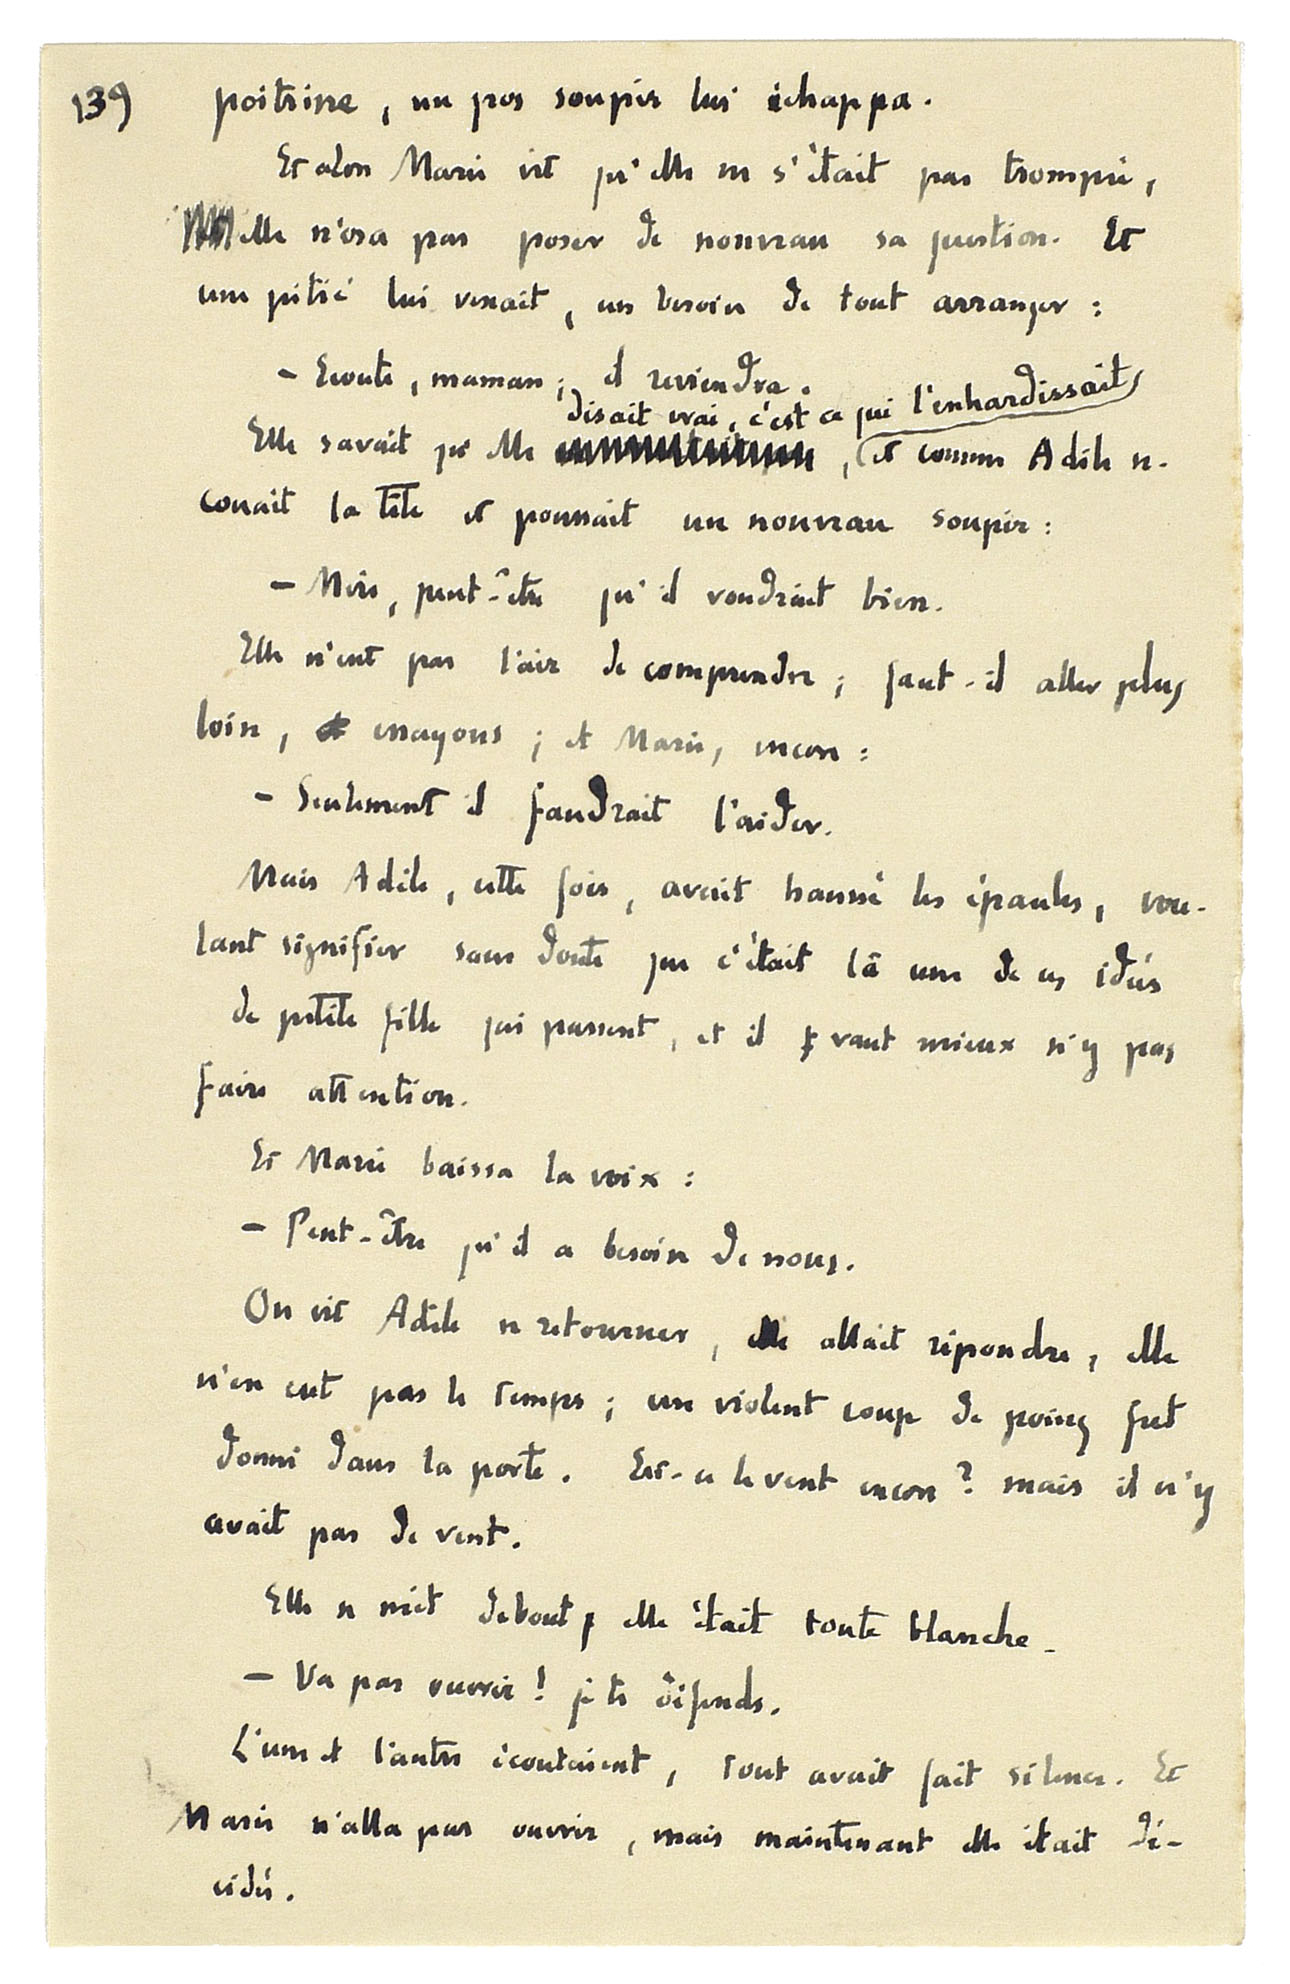 139
poitrine, un gros soupir lui échappa.
Et alors Marie vit qu'elle ne s'était pas trompée,
elle n'osa pas poser de nouveau sa question. Et
une pitié lui venait, un besoin de tout arranger :
— Ecoute, maman ; il reviendra.
disait vrai, c'est ce qui l'enhardissait,
Elle savait qu'elle , et comme Adèle se-
couait la tête et poussait un nouveau soupir :
— Mère, peut-être qu'il voudrait bien.
Elle n'eut pas l'air de comprendre ; faut-il aller plus
loin, essayons ; et Marie, encore :
— Seulement il faudrait l'aider.
Mais Adèle, cette fois, avait haussé les épaules, vou-
lant signifier sans doute que c'était là une de ces idées
de petite fille qui passent, et il vaut mieux n'y pas
faire attention.
Et Marie baissa la voix :
— Peut-être qu'il a besoin de nous.
On vit Adèle se retourner, elle allait répondre, elle
n'en eut pas le temps ; un violent coup de poing fut
donné dans la porte. Est-ce le vent encore ? mais il n'y
avait pas de vent.
Elle se mit debout, elle était toute blanche.
— Va pas ouvrir ! je te défends.
L'une et l'autre écoutaient, tout avait fait silence. Et
Marie n'alla pas ouvrir, mais maintenant elle était dé-
cidée.